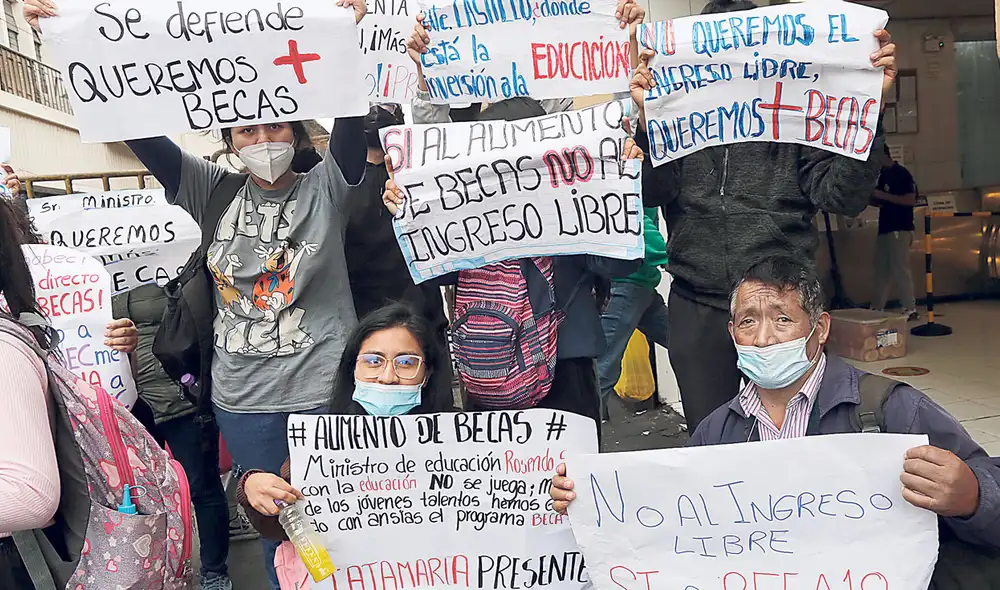 Se defiende
QUEREMOS +
BECAS
¡MÁS
CASTILLO, ¿donde
Está la
inversión a la
EDUCACION
NO QUEREMOS EL
INGRESO LIBRE,
QUEREMOS + BECAS
SI AL AUMENTO
DE BECAS NO AL
INGRESO LIBRE
Sr. Ministro
QUEREMOS
BECAS
directo
BECAS!
#AUMENTO DE BECAS #
Ministro de educación Rosendo
con la educación NO se juega;
de los jóvenes talentos hemos
con ansias el programa BECA
TATAMARIA PRESENTE
No AL INGRESO
LIBRE
SI a BECA 18